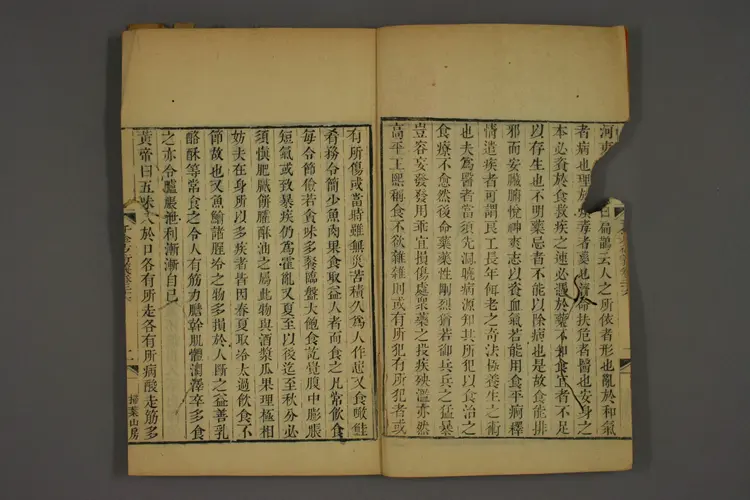 河東
曰扁鵲云人之所依者形也亂於和氣
者病也理於
毒者藥也
命扶危者醫也安身之
本必資於食救疾之速必憑於藥不知食宜者不足
以存生也不明藥忌者不能以除病也是故食能排
邪而安臟腑悅神爽志以資血氣若能用食平痾釋
情遣疾者可謂良工長年餌老之奇法極養生之術
也夫爲醫者當須先洞曉病源知其所犯以食治之
食療不愈然後命藥藥性剛烈猶若御兵兵之猛暴
豈容妄發發用乖宜損傷處眾藥之投疾殃濫亦然
高平王熙稱食不欲雜雜則或有所犯有所犯者或
有所傷或當時雖無災苦積久爲人作患又食噉鮭
肴務令簡少魚肉果食取益人者而食之凡常飲食
每令節儉若貪味多餐臨盤大飽食訖覺腹中膨脹
短氣或致暴疾仍爲霍亂又夏至以後迄至秋分必
須慎肥膩餅臛酥油之屬此物與酒漿瓜果理極相
妨夫在身所以多疾者皆因春夏取冷太過飲食不
節故也又魚鱠諸腥冷之物多損於人斷之益善乳
酪酥等常食之令人有筋力膽幹肌體潤澤卒多食
之亦令臚脹泄利漸漸自已
黃帝曰五味入於口各有所走各有所病酸走筋多
掃葉山房